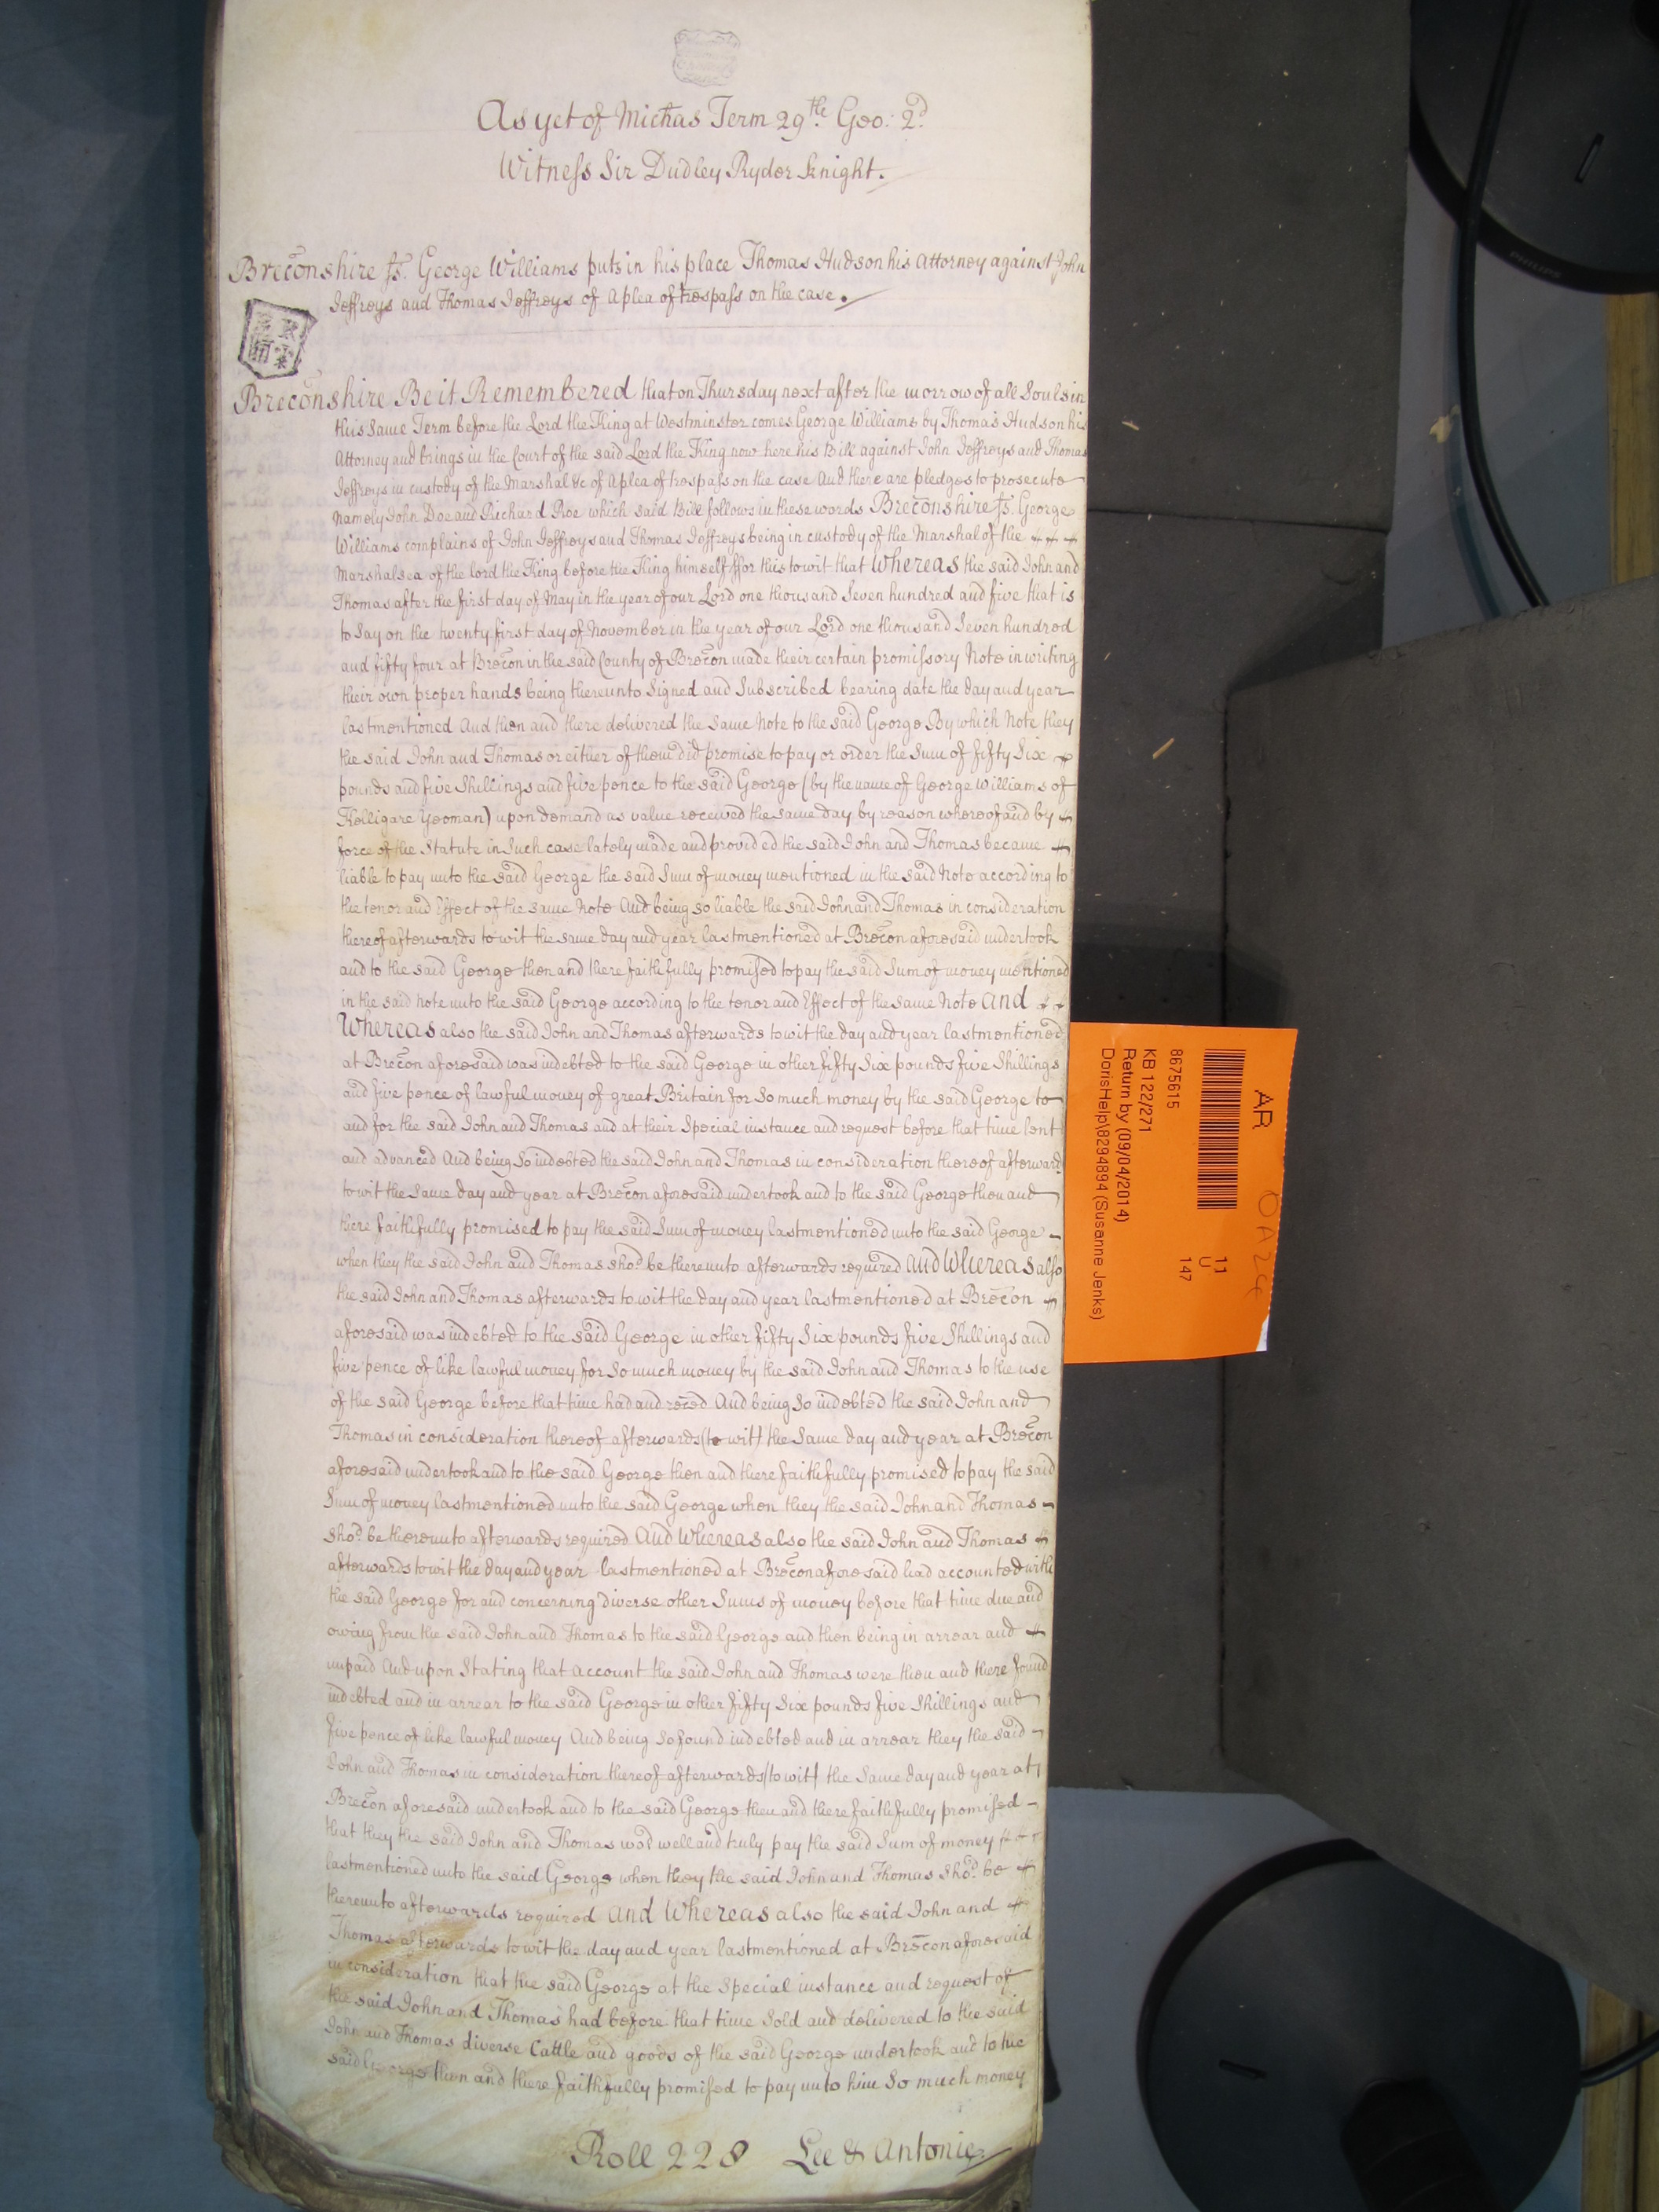 As yet of Michas Term 29th. Geo: 2d.
Witness Sir Dudley Ryder Knight.
Brecon shire ss. George Williams puts in his place Thomas Hudson his Attorney against John
Jeffreys and Thomas Jeffreys of a plea of trespass on the case.
Breconshire Be it Remembered that on Thursday next after the morrow of all Souls in
this same Term before the Lord the King at Westminster comes George Williams by Thomas Hudson his
Attorney and brings in the Court of the said Lord the King now here his Bill against John Jeffreys and Thomas
Jeffreys in custody of the Marshal &c of a plea of trespass on the case And there are pledges to prosecute
Namely John Doe and Richard Roe which said Bill follows in these words Breconshire ss. George
Williams complains of John Jeffreys and Thomas Jeffreys being in custody of the Marshal of the
Marshalsea of the lord the King before the King himself ffor this to wit that Whereas the said John and
Thomas after the first day of May in the year of our Lord one thousand Seven hundred and five that is
to Say on the twenty first day of November in the year of our Lord one thousand Seven hundred
and fifty four at Brecon in the said County of Brecon made their certain promissory Note in writing
their own proper hands being thereunto Signed and Subscribed bearing date the day and year
lastmentioned And then and there delivered the same Note to the said George By which Note they
the said John and Thomas or either of them did promise to pay or order the Sum of fifty Six
pounds and five Shillings and five pence to the said George (by the name of George Williams of
Kelligare Yeoman) upon demand as value received the same day by reason whereof and by
force of the Statute in Such case lately made and provided the said John and Thomas became
liable to pay unto the said George the said Sum of money mentioned in the said Note according to
the tenor and Effect of the same Note And being so liable the said John and Thomas in consideration
thereof afterwards to wit the same day and year lastmentioned at Brecon aforesaid undertook
and to the said George then and there faithfully promised to pay the said Sum of money mentioned
in the said note unto the said George according to the tenor and Effect of the same Note And
Whereas also the said John and Thomas afterwards to wit the day and year lastmentioned
at Brecon aforesaid was indebted to the said George in other fifty Six pounds five Shillings
and five pence of lawful money of great Britain for So much money by the said George to
and for the said John and Thomas and at their Special instance and request before that time lent
and advanced And being So indebted the said John and Thomas in consideration thereof afterwards
to wit the Same day and year at Brecon aforesaid undertook and to the said George then and
there faithfully promised to pay the said Sum of money lastmentioned unto the said George
when they the said John and Thomas shod. be thereunto afterwards required And Whereas also
the said John and Thomas afterwards to wit the day and year lastmentioned at Brecon
aforesaid was indebted to the said George in other fifty Six pounds five Shillings and
five pence of like lawful money for So much money by the said John and Thomas to the use
of the said George before that time had and reced And being So indebted the said John and
Thomas in consideration thereof afterwards (to wit) the Same day and year at Brecon
aforesaid undertook and to the said George then and there faithfully promised to pay the said
Sum of money lastmentioned unto the said George when they the said John and Thomas
shod. be thereunto afterwards required And Whereas also the said John and Thomas
afterwards to wit the day and year lastmentioned at Brecon aforesaid had accounted with
the said George for and concerning diverse other Sums of money before that time due and
owing from the said John and Thomas to the said George and then being in arrear and
unpaid And upon Stating that account the said John and Thomas were then and there found
indebted and in arrear to the said George in other fifty Six pounds five Shillings and
five pence of like lawful money And being So found indebted and in arrear they the said
John and Thomas in consideration thereof afterwards (to wit) the Same day and year at
Brecon aforesaid undertook and to the said George then and there faithfully promised
that they the said John and Thomas wod well and truly pay the said Sum of money
lastmentioned unto the said George when they the said John and Thomas shod. be
thereunto afterwards required And Whereas also the said John and
Thomas afterwards to wit the day and year lastmentioned at Brecon aforesaid
in consideration that the said George at the Special instance and request of
the said John and Thomas had before that time Sold and delivered to the said
John and Thomas diverse Cattle and goods of the said George undertook and to the
said George then and there faithfully promised to pay unto him So much money
Roll 228 Lee & Antonie.
AR OA24
8675615
11
U
147
KB 122/271
Return by (09/04/2014)
DorisHelp\8294894 (Susanne Jenks)
PHILIPS